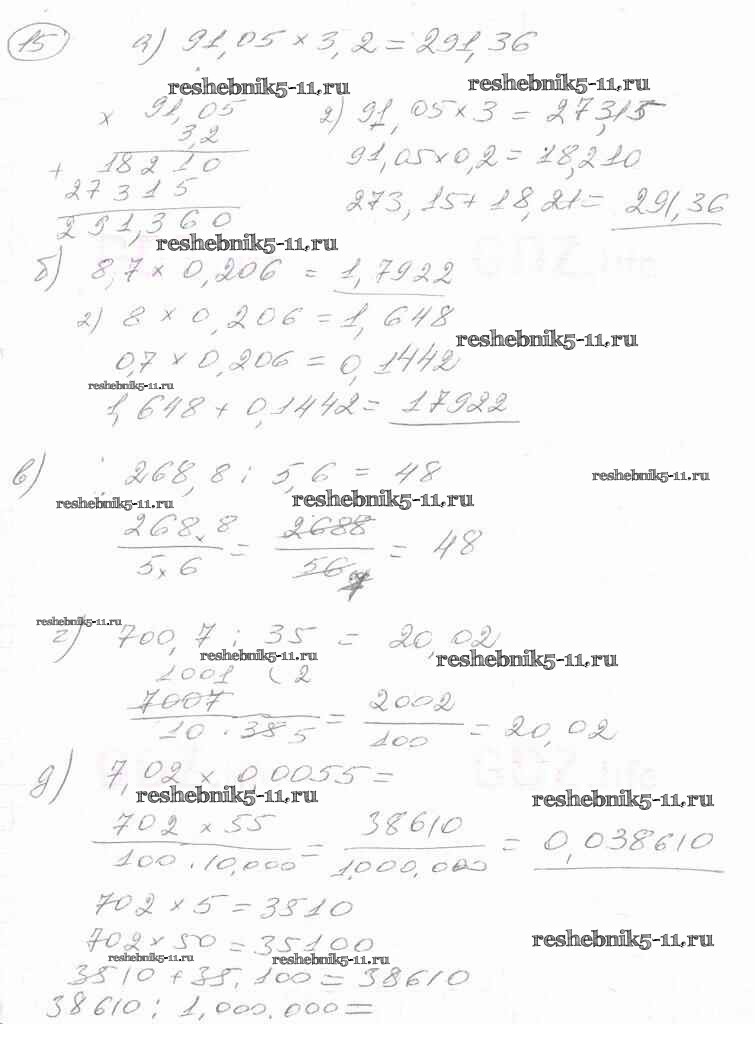 15 а) 91,05 × 3,2 = 291,36
reshebnik5-11.ru reshebnik5-11.ru
× 91,05 2) 91,05 × 3 = 273,15
3,2
91,05 × 0,2 = 18,210
+ 18210
27315 273,15 + 18,21 = 291,36
291,360
reshebnik5-11.ru
б) 8,7 × 0,206 = 1,7922
2) 8 × 0,206 = 1,648
reshebnik5-11.ru
0,7 × 0,206 = 0,1442
reshebnik5-11.ru
1,648 + 0,1442 = 17922
в) 268,8 : 5,6 = 48
reshebnik5-11.ru
reshebnik5-11.ru reshebnik5-11.ru
268,8 / 5,6 = 2688 / 56 = 48
reshebnik5-11.ru
г) 700,7 : 35 = 20,02
reshebnik5-11.ru reshebnik5-11.ru
1001 (2
7007 / 10 · 35 5 = 2002 / 100 = 20,02
д) 7,02 × 0,0055 =
reshebnik5-11.ru reshebnik5-11.ru
702 × 55 / 100 · 10,000 = 38610 / 1,000,000 = 0,038610
702 × 5 = 3510
702 × 50 = 35100
reshebnik5-11.ru
reshebnik5-11.ru reshebnik5-11.ru
3510 + 35.100 = 38610
38610 : 1,000.000 =